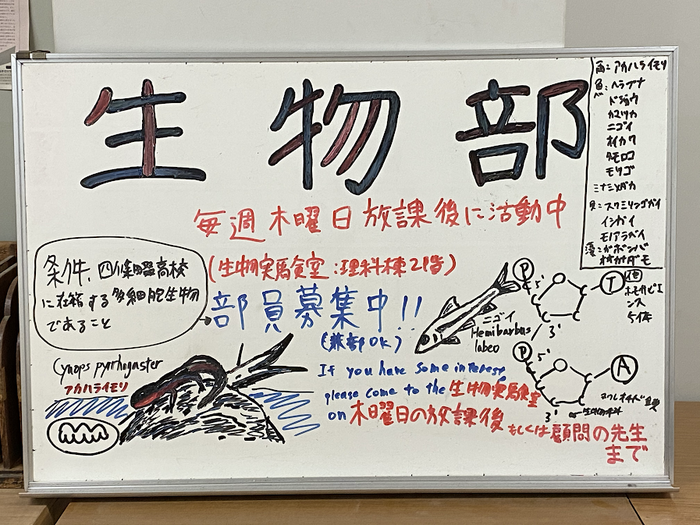 生物部
毎週木曜日放課後に活動中
(生物実験室:理科棟2階)
部員募集中!!
(兼部OK)
条件、四條畷高校
に在籍する多細胞生物
であること
Cynops pyrrhogaster
アカハライモリ
ニゴイ
Hemibarbus
labeo
If you have some interest,
please come to the 生物実験室
on 木曜日の放課後 もしくは顧問の先生
まで
両:アカハライモリ
魚:ヘラブナ
ドジョウ
カマツカ
ニゴイ
オイカワ
タモロコ
モツゴ
ミナミメダカ
貝:スクミリンゴガイ
イシガイ
モノアラガイ
藻:カボンバ
オオカナダモ
他
ホモサピエ
ンス
5個体
P
5'
T
3'
P
5'
A
3'